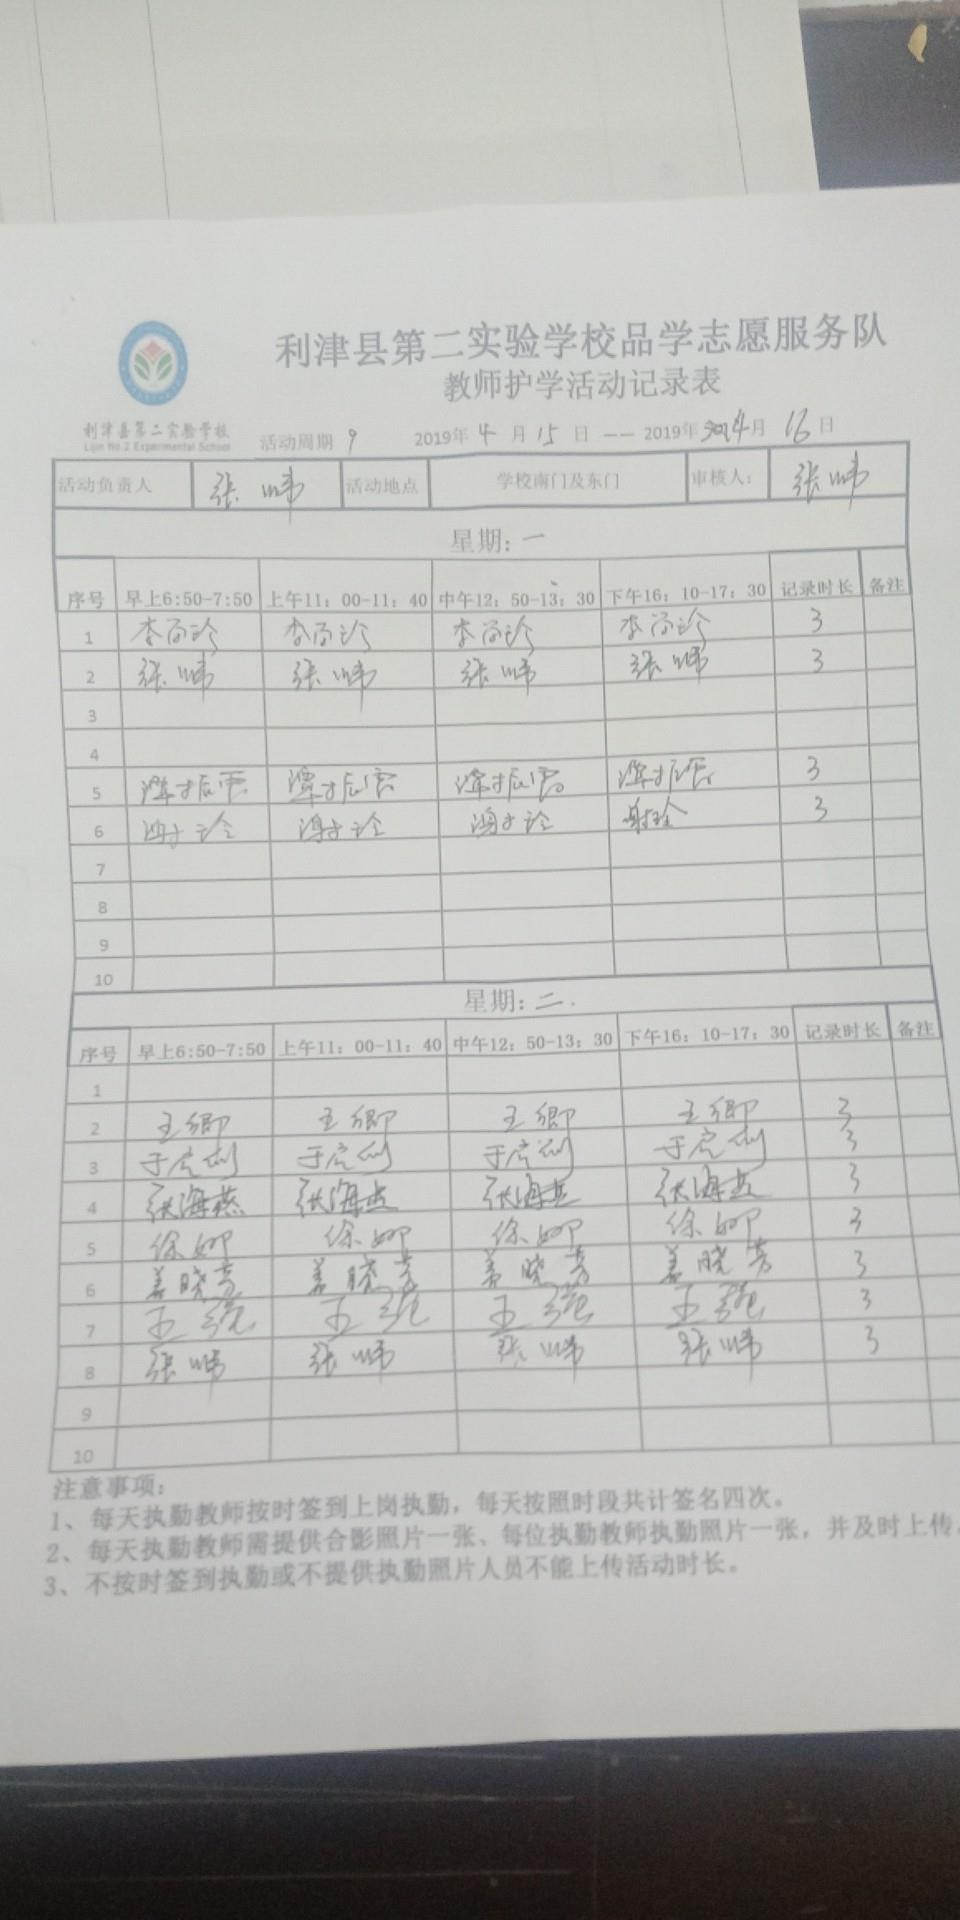 利津县第二实验学校品学志愿服务队
教师护学活动记录表
利津县第二实验学校
Lijin No.2 Experimental School
活动周期 9 2019年 4 月 15 日 —— 2019年 4月 16 日
活动负责人 张 活动地点 学校南门及东门 审核人: 张
星期: 一
序号 早上6:50-7:50 上午11: 00-11: 40 中午12: 50-13: 30 下午16: 10-17: 30 记录时长 备注
1 3
2 张 张 张 张 3
3
4
5 3
6 3
7
8
9
10
星期: 二
序号 早上6:50-7:50 上午11: 00-11: 40 中午12: 50-13: 30 下午16: 10-17: 30 记录时长 备注
1
2 王卿 王卿 王卿 王卿 3
3 3
4 张海燕 张海燕 张海燕 张海燕 3
5 徐娜 徐娜 徐娜 徐娜 3
6 姜晓芳 姜晓芳 姜晓芳 姜晓芳 3
7 王 王 王 王 3
8 张 张 张 张 3
9
10
注意事项:
1、每天执勤教师按时签到上岗执勤，每天按照时段共计签名四次。
2、每天执勤教师需提供合影照片一张、每位执勤教师执勤照片一张，并及时上传。
3、不按时签到执勤或不提供执勤照片人员不能上传活动时长。